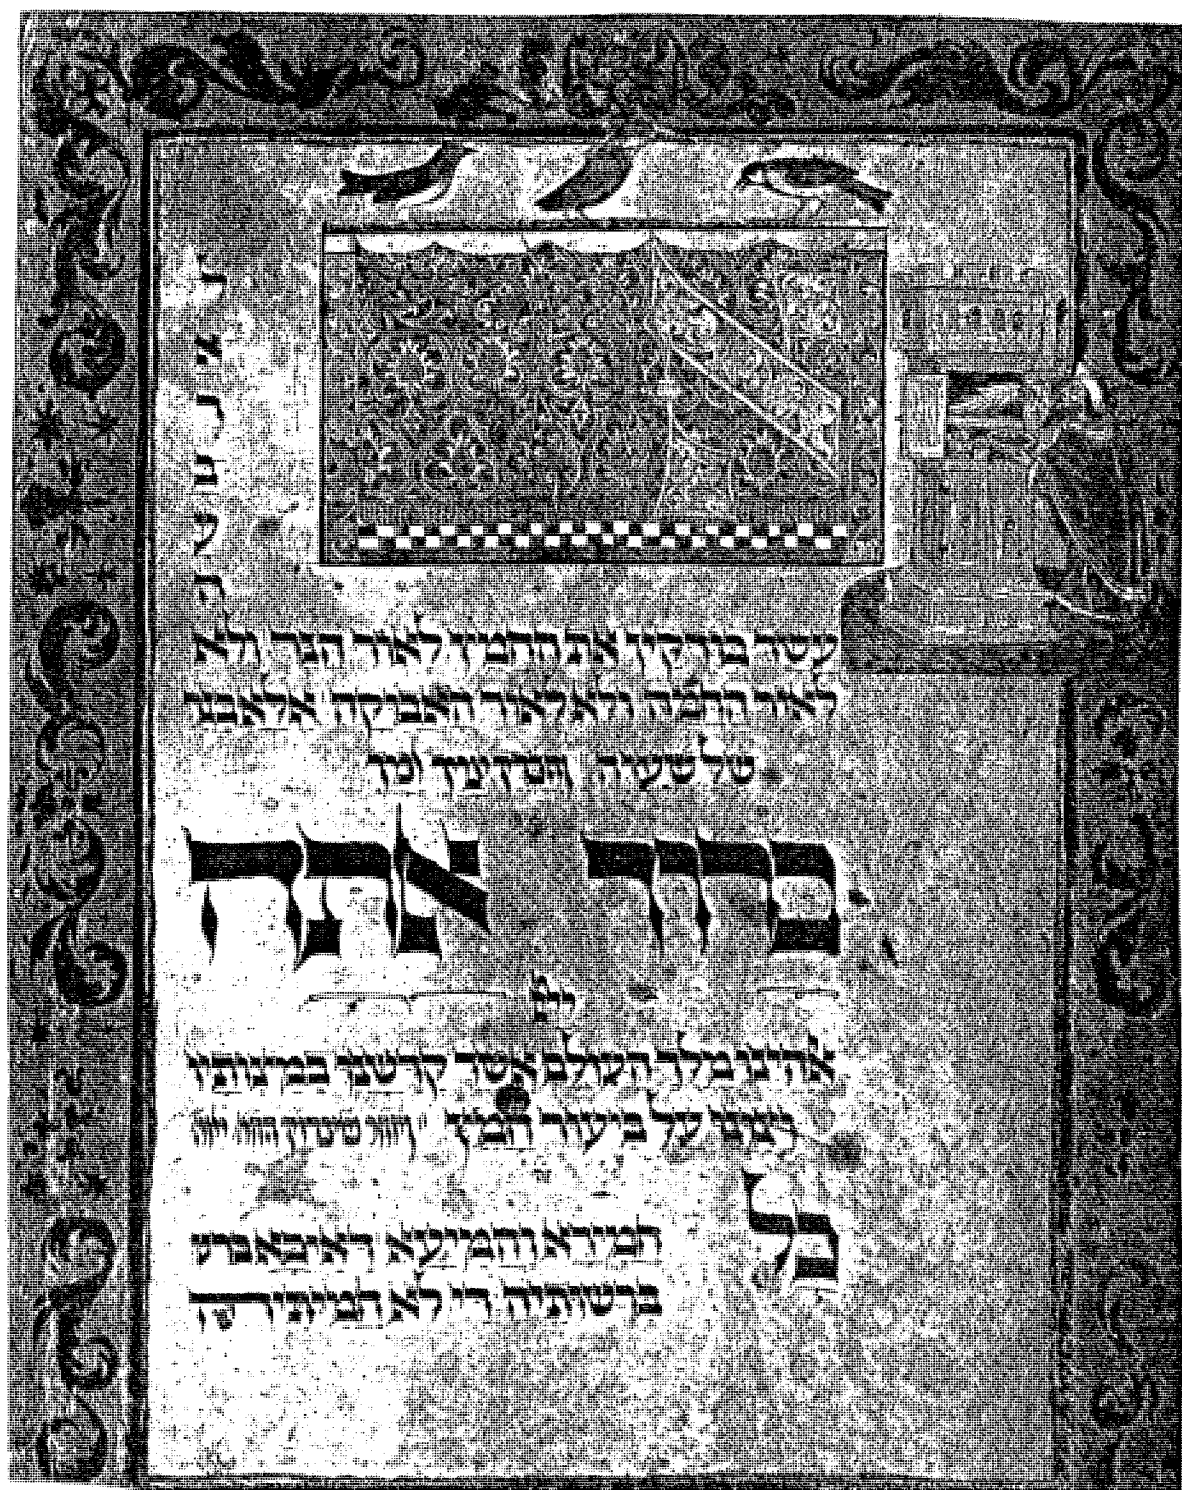 לארבעה
עשר בודקין את החמץ לאור הנר ולא
לאור החמה ולא לאור האבוקה אלא בנר
של שעוה
ברוך אתה
ייי
אלהינו מלך העולם אשר קדשנו במצותיו
וצונו על ביעור חמץ
כל
חמירא וחמיעא דאיכא ברש
ברשותיה די לא חמיתיה